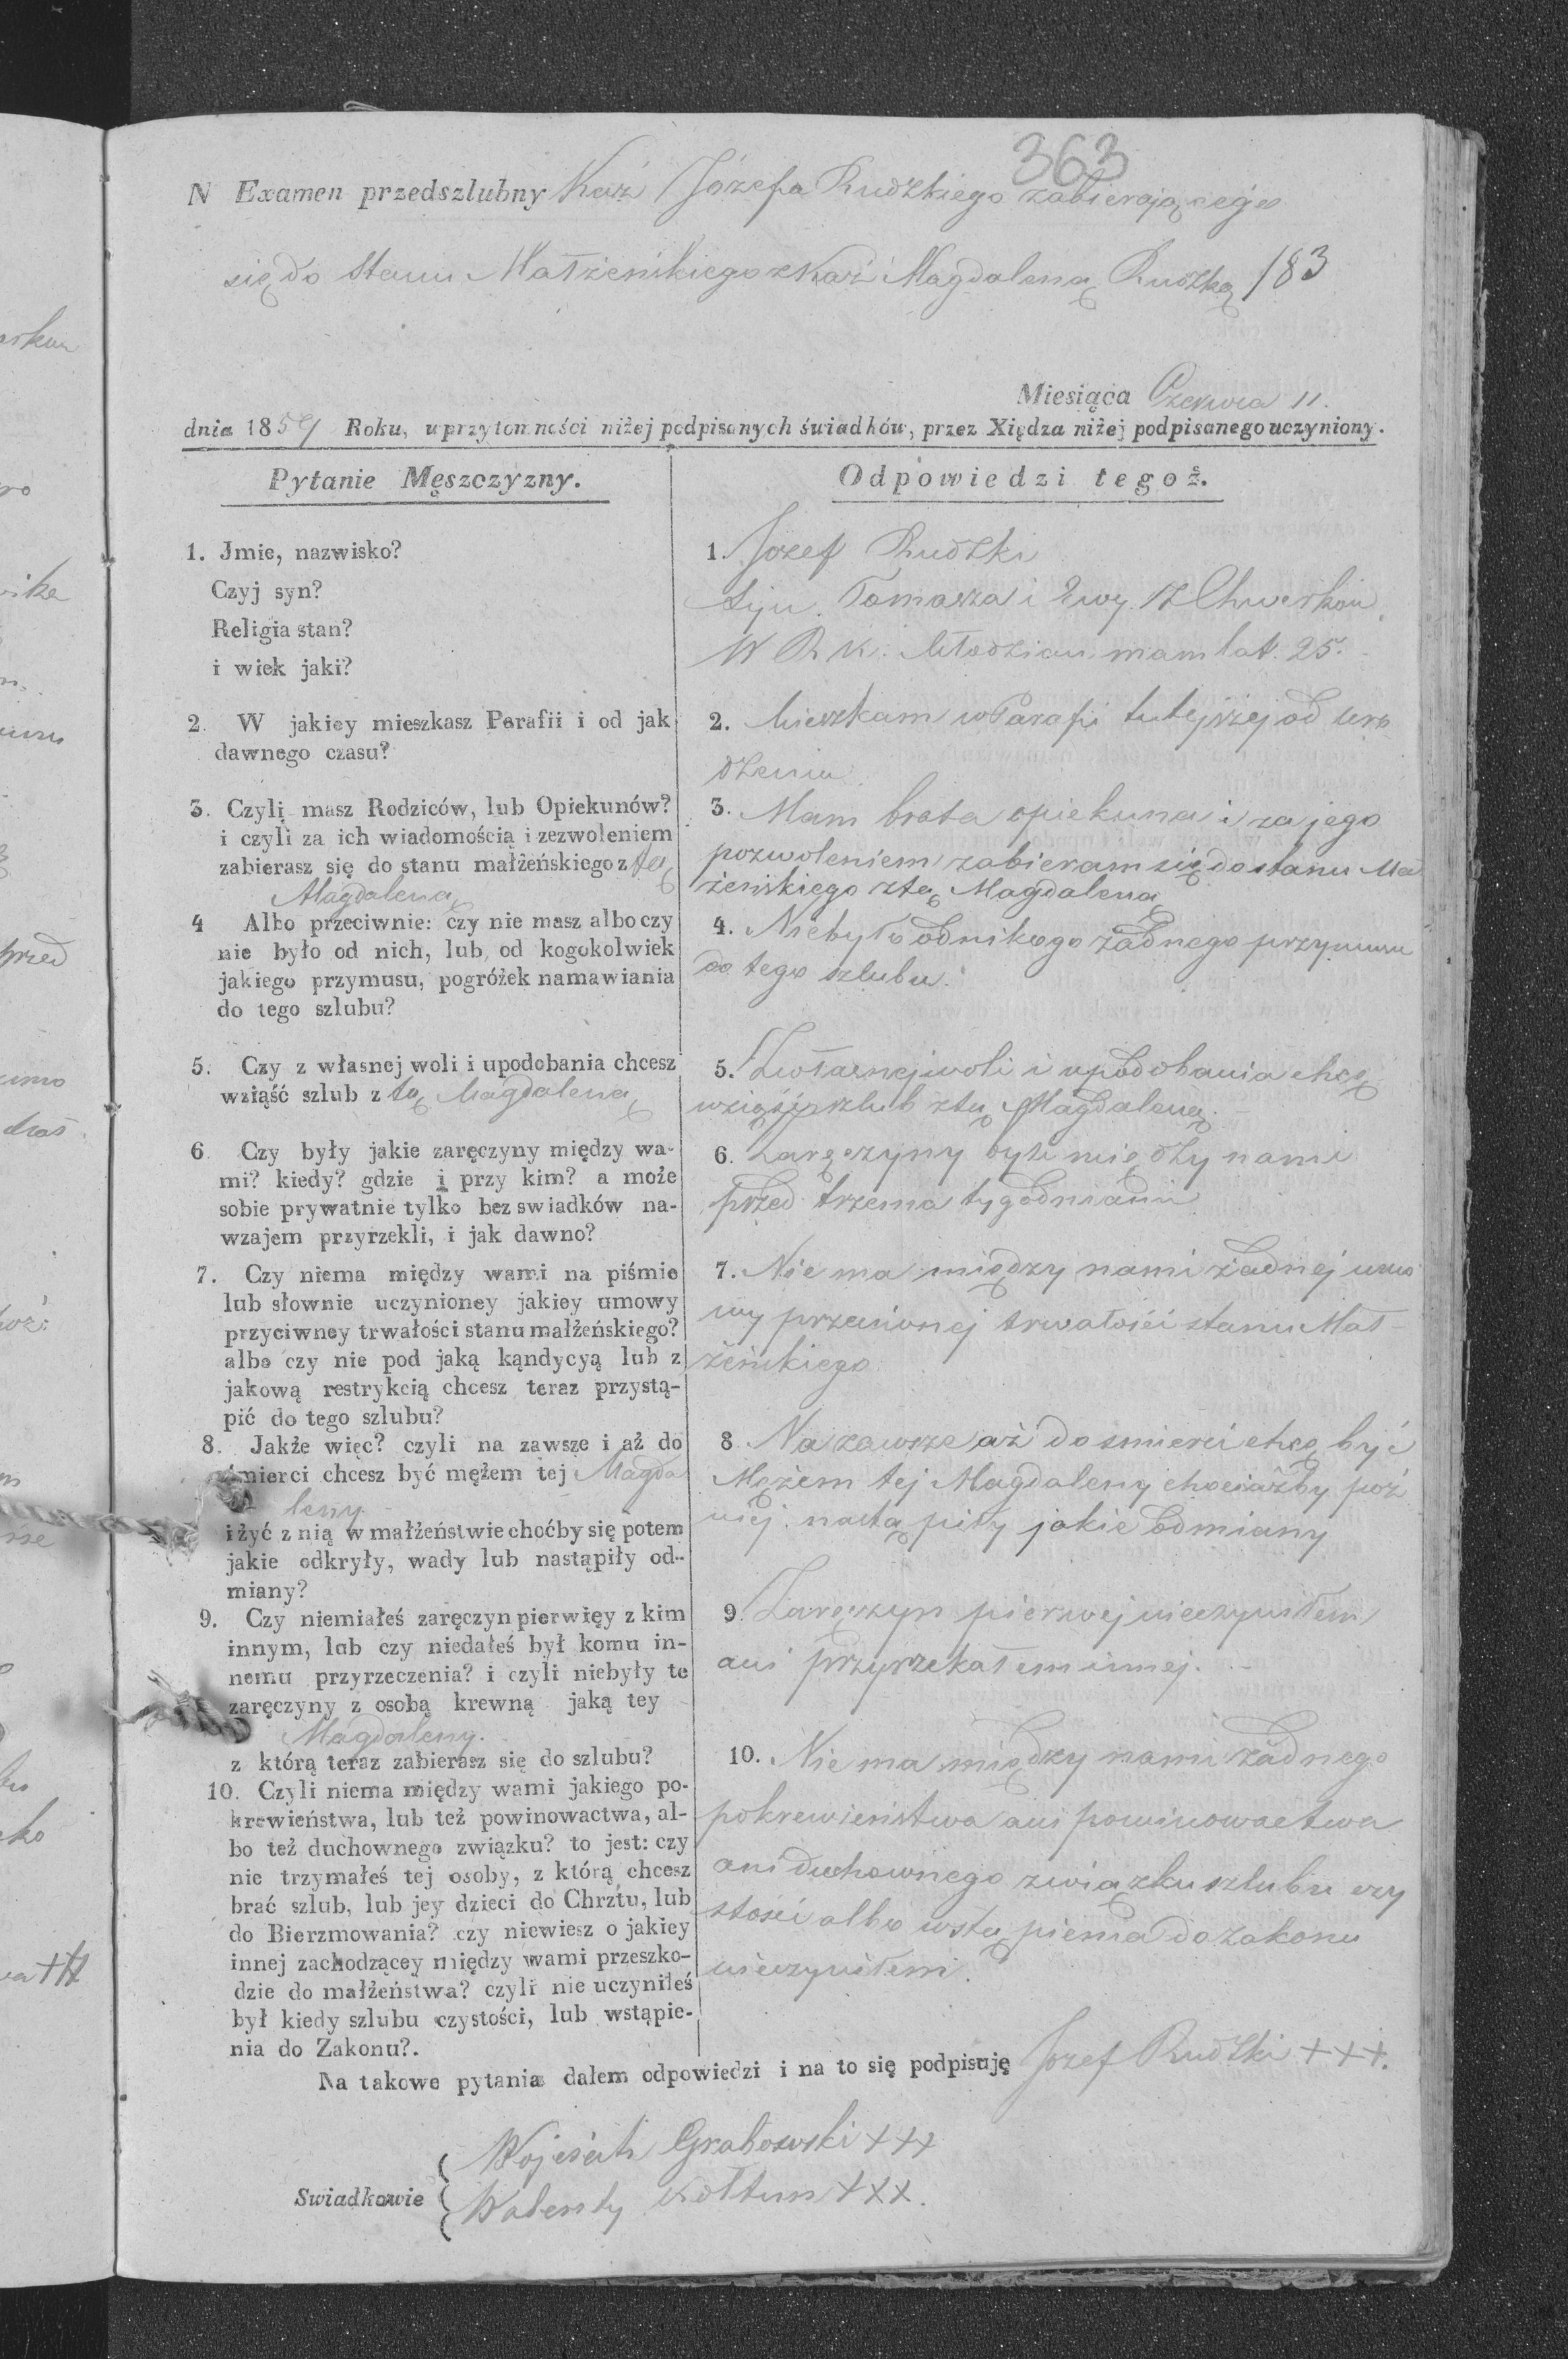 363
N Examen przedszlubny Kaź Józefa Rudzkiego zabierającego
się do Stanu Małżeńskiego z Kaź Magdaleną Rudzką 183
Miesiąca Czerwca 11.
dnia 1859 Roku, w przytomności niżej podpisanych świadków, przez Xiędza niżej podpisanego uczyniony.
Pytanie Męszczyzny.
1. Jmie, nazwisko?
Czyj syn?
Religia stan?
i wiek jaki?
2. W jakiey mieszkasz Parafii i od jak
dawnego czasu?
3. Czyli masz Rodziców, lub Opiekunów?
i czyli za ich wiadomością i zezwoleniem
zabierasz się do stanu małżeńskiego z tą
Magdaleną
4 Albo przeciwnie: czy nie masz albo czy
nie było od nich, lub, od kogokolwiek
jakiego przymusu, pogróżek namawiania
do tego szlubu?
5. Czy z własnej woli i upodobania chcesz
wziąść szlub z tą Magdaleną
6. Czy były jakie zaręczyny między wa-
mi? kiedy? gdzie i przy kim? a może
sobie prywatnie tylko bez swiadków na-
wzajem przyrzekli, i jak dawno?
7. Czy niema między wami na piśmie
lub słownie uczynioney jakiey umowy
przyciwney trwałości stanu małżeńskiego?
albo czy nie pod jaką kąndycyą lub z
jakową restrykcią chcesz teraz przystą-
pić do tego szlubu?
8. Jakże więc? czyli na zawsze i aż do
śmierci chcesz być mężem tej Magda
leny
i żyć z nią w małżeństwie choćby się potem
jakie odkryły, wady lub nastąpiły od-
miany?
9. Czy niemiałeś zaręczyn pierwięy z kim
innym, lub czy niedałeś był komu in-
nemu przyrzeczenia? i czyli niebyły te
zaręczyny z osobą krewną jaką tey
Magdaleny.
z którą teraz zabierasz się do szlubu?
10. Czyli niema między wami jakiego po-
krewieństwa, lub też powinowactwa, al-
bo też duchownego związku? to jest: czy
nie trzymałeś tej osoby, z którą chcesz
brać szlub, lub jey dzieci do Chrztu, lub
do Bierzmowania? czy niewiesz o jakiey
innej zachodzącey między wami przeszko-
dzie do małżeństwa? czyli nie uczyniłeś
był kiedy szlubu czystości, lub wstąpie-
nia do Zakonu?.
Odpowiedzi tegoż.
1. Jozef Rudzki
Syn. Tomasza i Ewy
W R K. Młodzian mam lat 25.
2. Mieszkam w Parafii tutejszej od uro
dzenia
3. Mam brata opiekuna i za jego
pozwoleniem zabieram się do stanu Ma
żeńskiego z tą Magdaleną
4. Niebyło od nikogo żadnego przymusu
do tego szlubu.
5. Z własnej woli i upodobania chcę
wziąść szlub z tą Magdaleną.
6. Zaręczyny byli między nami
przed trzema tygodniami
7. Nie ma między nami żadnej umo
wy przeciwnej trwałości stanu Mał-
żeńskiego
8 Na zawsze aż do smierci chcę być
Mężem tej Magdaleny chociażby poź
niej nastąpiły jakie odmiany
9. Zaręczyn pierwej nieczyniłem
ani przyrzekałem innej.
10. Nie ma między nami żadnego
pokrewieństwa ani powinowactwa
ani duchownego związku szlubu czy
stości albo wstąpienia do zakonu
nieczyniłem.
Na takowe pytania dałem odpowiedzi i na to się podpisuję Jozef Rudzki +++.
Swiadkowie { Wojciech Grabowski +++
Walenty Kołtun +++.